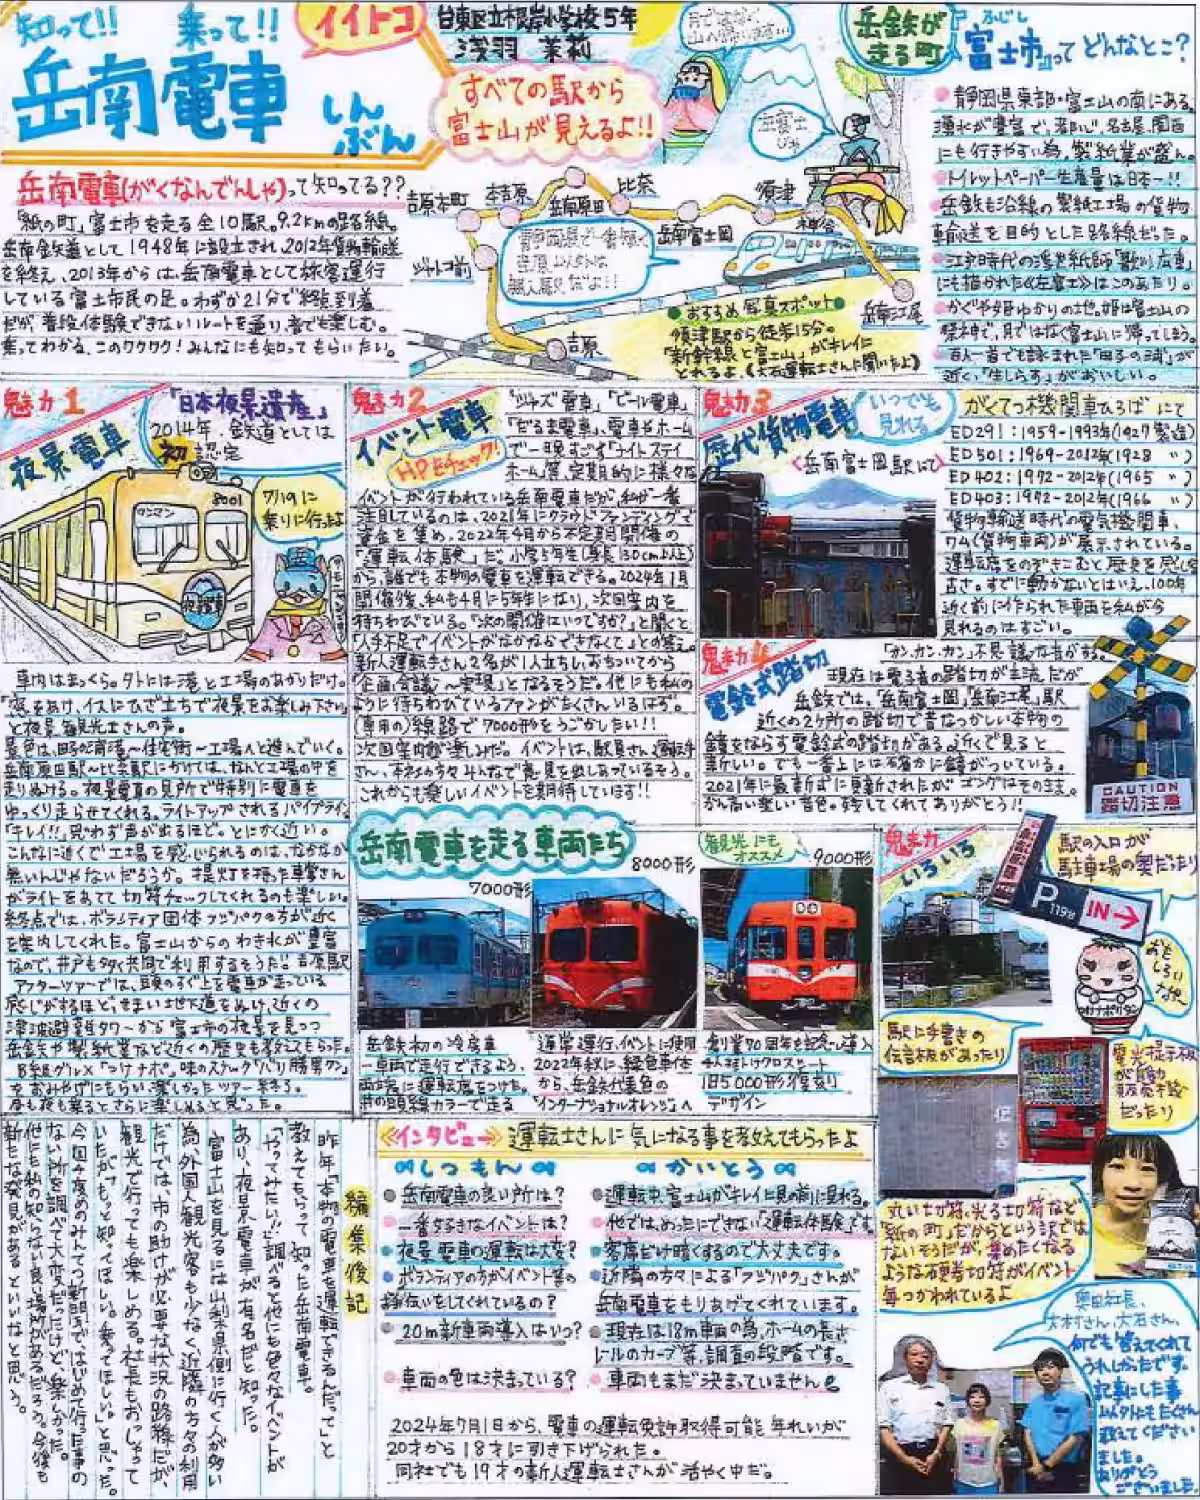 知って!! 乗って!!
イイトコ
岳南電車
しんぶん
台東区立根岸小学校5年
浅羽 茉莉
すべての駅から
富士山が見えるよ!!
月ではなく
岳鉄が
走る町
『富士市』ってどんなとこ?
ふじし
静岡県東部・富士山の南にある。
湧水が豊富で、都心、名古屋、関西
にも行きやすい為、製紙業が盛ん。
トイレットペーパー生産量は日本一!!
岳鉄も沿線の製紙工場の貨物
輸送を目的とした路線だった。
江戸時代の浮世絵師「歌川広重」
にも描かれた《左富士》はこのあたり。
かぐや姫ゆかりの地。姫は富士山の
祭神で、月ではなく富士山に帰ってしまう。
百人一首でも詠まれた「田子の浦」が
近く、「生しらす」がおいしい。
岳南電車(がくなんでんしゃ)って知ってる??
「紙の町」富士市を走る全10駅。9.2kmの路線。
岳南鉄道として1948年に設立され、2012年貨物輸送
を終え、2013年からは、岳南電車として旅客運行
している富士市民の足。わずか21分で終点到着
だが、普段体験できないルートを通り、者でも楽しむ。
乗ってわかる、このワクワク!みんなにも知ってもらいたい。
吉原本町
本吉原
岳南原田
比奈
岳南富士岡
須津
神谷
岳南江尾
ジヤトコ前
吉原
無人駅だよ!!
おすすめ写真スポット
須津駅から徒歩15分。
「新幹線と富士山」がキレイに
とれるよ。(大石運転士さんに聞いたよ)
魅力1
夜景電車
「日本夜景遺産」
2014年、鉄道としては
初認定
ワンマン
8001
夜景電車
7/19に
乗りに行ったよ
車内はまっくら。外には港と工場のあかりだけ。
「窓をあけ、イスにひざ立ちで夜景をお楽しみ下さい」
と夜景観光士さんの声。
景色は、田子の浦港〜住宅街〜工場へと進んでいく。
岳南原田駅〜比奈駅にかけては、なんと工場の中を
走りぬける。夜景電車の見所で特別に電車を
ゆっくり走らせてくれる。ライトアップされるパイプライン
「キレイ!!」思わず声が出るほど。とにかく近い。
こんなに近くで工場を感じられるのは、なかなか
無いんじゃないだろうか。提灯を持った車掌さん
がライトをあてて切符チェックしてくれるのも楽しい。
終点では、ボランティア団体フジパクの方が近く
を案内してくれた。富士山からのわき水が豊富
なので、井戸も多く共同で利用するそうだ。吉原駅
アフターツアーでは、頭のすぐ上を電車が走っている
感じがするほど、せまい地下道をぬけ、近くの
津波避難タワーから富士市の夜景を見つつ
岳鉄や製紙業など近くの歴史も教えてもらった。
B級グルメ「つけナポ」味のスナック「パリ勝男クン」
をおみやげにもらい楽しかったツアー終了。
昼も夜も乗るとさらに楽しめると思った。
魅力2
イベント電車
HPをチェック!
「ジャズ電車」「ビール電車」
「だるま電車」、電車やホーム
で一晩すごす「ナイトステイ
ホーム」等、定期的に様々な
イベントが行われている岳南電車だが、私が一番
注目しているのは、2021年にクラウドファンディングで
資金を集め、2022年4月から不定期開催の
「運転体験」だ。小学5年生(身長130cm以上)
から、誰でも本物の電車を運転できる。2024年1月
開催後、私も4月に5年生になり、次回案内を
待ちわびている。「次の開催はいつですか?」と聞くと
「人手不足でイベントがなかなかできなくて」との答え。
新人運転手さん2名が1人立ちし、おちついてから
「企画、会議〜実現」となるそうだ。他にも私の
ように待ちわびているファンがたくさんいるはず。
(専用の)線路で7000形をうごかしたい!!
次回案内が楽しみだ。イベントは、駅員さん、運転手
さん、本社の方々みんなで意見を出しあっているそう。
これからも楽しいイベントを期待しています!!
魅力3
歴代貨物電車
いつでも
見れる
《岳南富士岡駅にて》
がくてつ機関車ひろばにて
ED291:1959-1993年(1927製造)
ED501:1969-2012年(1928 〃)
ED402:1972-2012年(1965 〃)
ED403:1972-2012年(1966 〃)
貨物輸送時代の電気機関車、
ワム(貨物車両)が展示されている。
運転席をのぞきこむと歴史を感じる
古さ。すでに動かないとはいえ、100年
近く前に作られた車両を私が今
見れるのはすごい。
魅力4
電鈴式踏切
「カン、カン、カン」不思議な音がする。
現在は電子音の踏切が主流だが
岳鉄では、「岳南富士岡」「岳南江尾」駅
近くの2ヶ所の踏切で昔なつかしい本物の
鐘をならす電鈴式の踏切がある。近くで見ると
新しい。でも一番上には確かに鐘がついている。
2021年に最新式に更新されたがゴングはそのまま。
かん高い楽しい音色。残してくれてありがとう!!
CAUTION
踏切注意
岳南電車を走る車両たち
7000形
8000形
観光にも
オススメ
9000形
岳鉄初の冷房車
一車両で走行できるよう、
両端に運転席をつけた。
井の頭線カラーで走る
通常運行、イベントに使用
2022年秋に、緑色車体
から、岳鉄代表色の
「インターナショナルオレンジ」へ
創業70周年を記念し導入
4人がけクロスシート
旧5000形復刻
デザイン
魅力
いろいろ
駅の入口が
駐車場の奥だったり
P
119台
IN→
おもしろいナポ〜
つけナポリタン
駅に手書きの
伝言板があったり
電光掲示板
が自動
販売機
だったり
丸い切符、光る切符など
「紙の町」だからという訳では
ないそうだが、集めたくなる
ような硬券切符がイベント
毎つかわれているよ
奥田社長、
大村さん、大石さん、
何でも答えてくれて
うれしかったです。
記事にした事
以外にもたくさん
教えてください
ました。
ありがとう
ございました。
《インタビュー》運転士さんに気になる事を教えてもらったよ
しつもん
かいとう
岳南電車の良い所は?
運転中、富士山がキレイに目の前に見れる。
一番好きなイベントは?
他では、めったにできない「運転体験」です。
夜景電車の運転は大変?
客席だけ暗くするので大丈夫です。
ボランティアの方がイベント等の
お手伝いをしてくれているの?
近隣の方々による「フジパク」さんが
岳南電車をもりあげてくれています。
20m新車両導入はいつ?
現在は18m車両の為、ホームの長さ
レールのカーブ等、調査の段階です。
車両の色は決まっている?
車両もまだ決まっていません
2024年7月1日から、電車の運転免許取得可能年れいが
20才から18才に引き下げられた。
同社でも19才の新人運転士さんが活やく中だ。
編集後記
昨年「本物の電車を運転できるんだって」と
教えてもらって知った岳南電車。
「やってみたい!!」調べると他にも色々なイベントが
あり、夜景電車が有名だと知った。
富士山を見るには山梨県側に行く人が多い
為、外国人観光客も少なく、近隣の方々の利用
だけでは、市の助けが必要な状況の路線だが、
観光で行っても楽しめる。社長もおっしゃって
いたが「もっと知ってほしい。乗ってほしい」と思った。
今回4度めのみんてつ新聞ではじめて行った事の
ない所を調べて大変だったけど、楽しかった。
他にも私の知らない良い場所があるだろう。今後も
新たな発見があるといいなと思う。